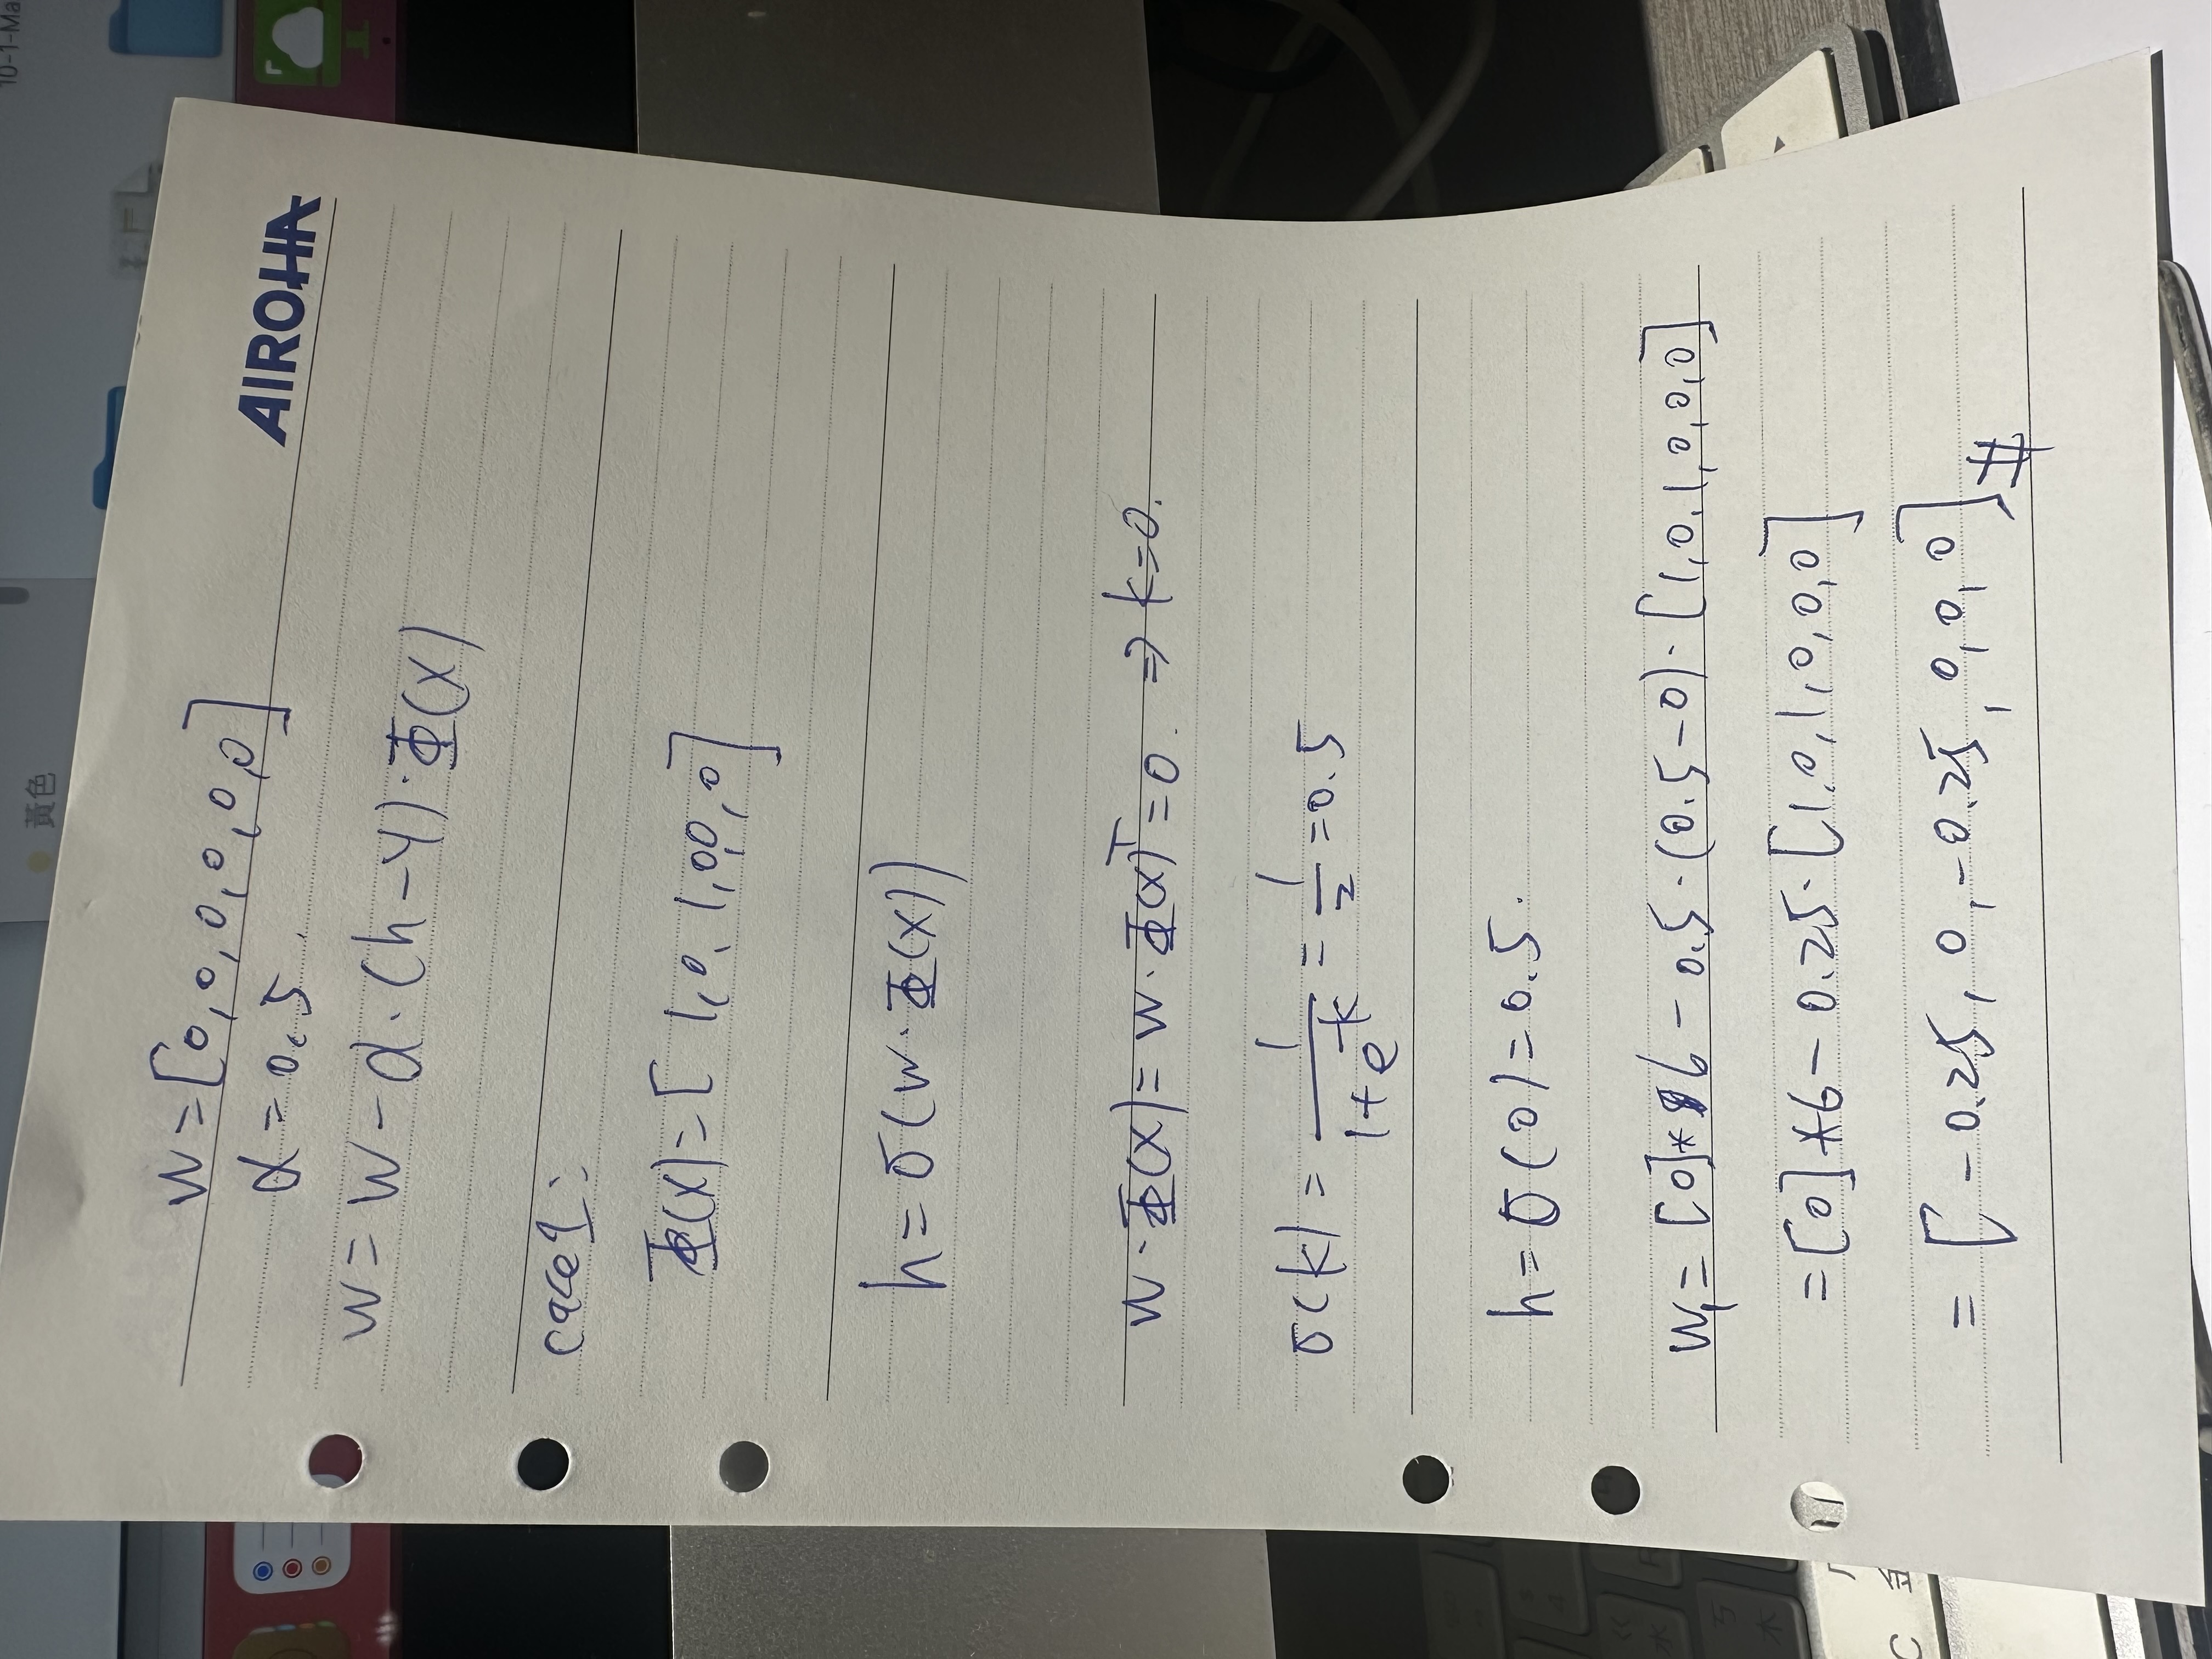 10-1-Ma
黃色
AIROHA
W = [0, 0, 0, 0, 0, 0]
α = 0.5.
W = W - α · (h - y) · Φ(X)
case1:
Φ(X) = [ 1, 0, 1, 0, 0, 0 ]
h = σ(W · Φ(X))
W · Φ(X) = W · Φ(X)ᵀ = 0. ⇒ k = 0.
σ(k) = 1/(1+e^-k) = 1/2 = 0.5
h = σ(0) = 0.5.
W₁ = [0]*6 - 0.5 · (0.5 - 0) · [1, 0, 1, 0, 0, 0]
= [0]*6 - 0.25 · [1, 0, 1, 0, 0, 0]
= [ -0.25, 0, -0.25, 0, 0, 0 ] #
水
木
C
金